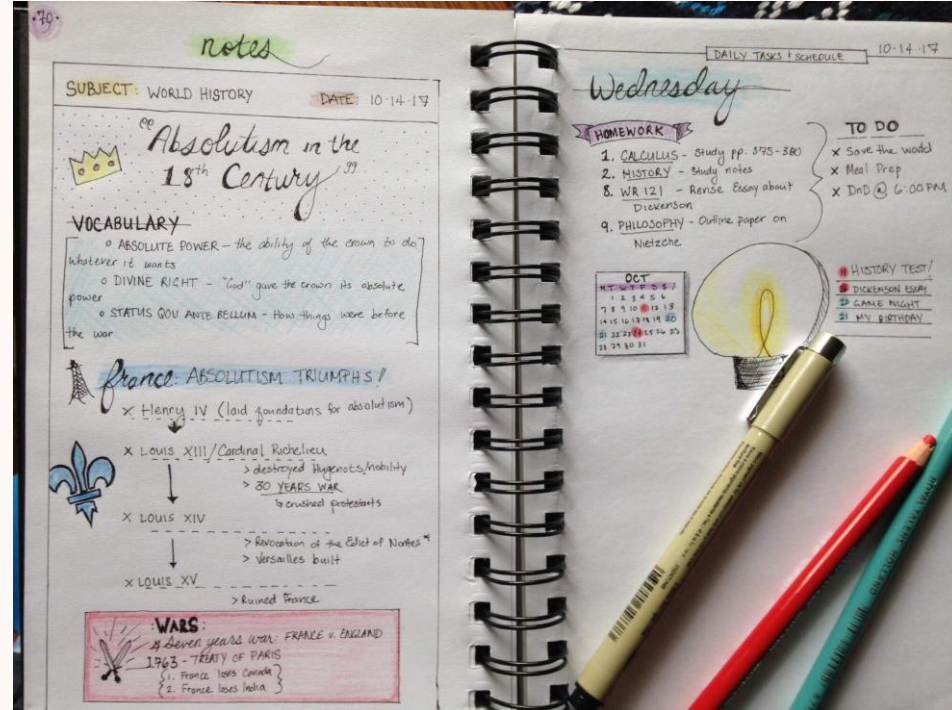 ·70·
notes
SUBJECT: WORLD HISTORY DATE: 10·14·17
"Absolutism in the
18th Century"
VOCABULARY
o ABSOLUTE POWER - the ability of the crown to do
whatever it wants
o DIVINE RIGHT - "God" gave the crown its absolute
power
o STATUS QOU ANTE BELLUM - How things were before
the war
france: ABSOLUTISM TRIUMPHS!
x Henry IV (laid foundations for absolutism)
x LOUIS XIII/Cardinal Richelieu
> destroyed Hugenots/nobility
> 30 YEARS WAR
↳ crushed protestants
x LOUIS XIV
> Revocation of the Edict of Nantes*
> Versailles built
x LOUIS XV
> Ruined France
:WARS:
* Seven years war: FRANCE v. ENGLAND
1763 - TREATY OF PARIS
{1. France loses Canada}
{2. France loses India}
DAILY TASKS & SCHEDULE 10·14·17
Wednesday
HOMEWORK
1. CALCULUS - Study pp. 375-380
2. HISTORY - Study notes
8. WR 121 - Revise Essay about
Dickenson
9. PHILOSOPHY - Outline paper on
Nietzche
TO DO
x Save the world
x Meal Prep
x DnD @ 6:00 PM
OCT
M T W T F S S
1 2 3 4 5 6
7 8 9 10 11 12 13
14 15 16 17 18 19 20
21 22 23 24 25 26 27
28 29 30 31
HISTORY TEST!
DICKENSON ESSAY
20 GAME NIGHT
21 MY BIRTHDAY